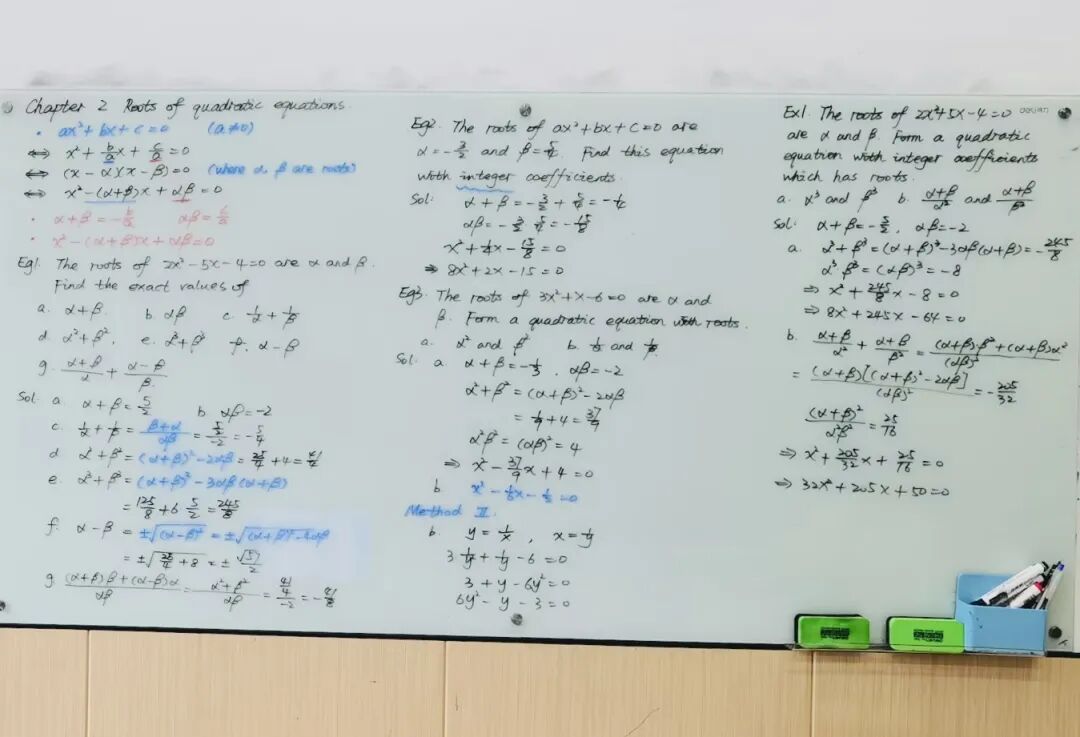 Chapter 2 Roots of quadratic equations.
• ax²+bx+c=0 (a≠0)
⇔ x²+b/a x+c/a=0
⇔ (x-α)(x-β)=0 (where α β are roots)
⇔ x²-(α+β)x+αβ=0
• α+β=-b/a αβ=c/a
• x²-(α+β)x+αβ=0
Eg1. The roots of 2x²-5x-4=0 are α and β.
Find the exact values of
a. α+β. b. αβ c. 1/α+1/β
d. α²+β². e. α³+β³ f. α-β
g. (α+β)/α + (α-β)/β
Sol a. α+β=5/2 b αβ=-2
c. 1/α+1/β=(β+α)/αβ=(5/2)/-2=-5/4
d α²+β²=(α+β)²-2αβ=25/4+4=41/4
e. α³+β³=(α+β)³-3αβ(α+β)
=125/8+6·5/2=245/8
f. α-β=±√(α-β)²=±√(α+β)²-4αβ
=±√25/4+8=±√57/2
g. ((α+β)β+(α-β)α)/αβ=(α²+β²)/αβ=(41/4)/-2=-41/8
Eg2. The roots of ax²+bx+c=0 are
α=-3/2 and β=5/4. Find this equation
with integer coefficients.
Sol: α+β=-3/2+5/4=-1/4
αβ=-3/2·5/4=-15/8
x²+1/4x-15/8=0
⇒ 8x²+2x-15=0
Eg3. The roots of 3x²+x-6=0 are α and
β. Form a quadratic equation with roots.
a. α² and β² b. 1/α and 1/β.
Sol. a. α+β=-1/3, αβ=-2
α²+β²=(α+β)²-2αβ
=1/9+4=37/9
α²β²=(αβ)²=4
⇒ x²-37/9x+4=0
b x²-1/6x-1/2=0
Method II.
b. y=1/x, x=1/y
3 1/y²+1/y-6=0
3+y-6y²=0
6y²-y-3=0
Ex1. The roots of 2x²+5x-4=0
are α and β. Form a quadratic
equation with integer coefficients
which has roots.
a. α³ and β³ b. (α+β)/α² and (α+β)/β²
Sol: α+β=-5/2, αβ=-2
a. α³+β³=(α+β)³-3αβ(α+β)=-245/8
α³β³=(αβ)³=-8
⇒ x²+245/8x-8=0
⇒ 8x²+245x-64=0
b. (α+β)/α²+(α+β)/β²=((α+β)β²+(α+β)α²)/(αβ)²
=(α+β)[(α+β)²-2αβ]/(αβ)²=-205/32
(α+β)²/α²β²=25/16
⇒ x²+205/32x+25/16=0
⇒ 32x²+205x+50=0